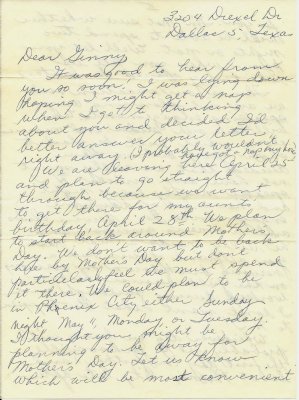 3204 Drexel Dr
Dallas 5, Texas
Dear Ginny
It was good to hear from
you so soon. I was lying down
hoping I might get a nap
when I got to thinking
about you and decided I'd
better answer your letter
right away. (I probably wouldn't
have got a nap anyhow)
We are leaving here April 25
and plan to go straight
through because we want
to get there for my aunts
birthday, April 28th We plan
to start back around Mothers
Day. We don't want to be back
here by Mothers Day but don't
particularly feel we must spend
it there. We could plan to be
in Phoenix City either Sunday
night May 11, Monday or Tuesday.
I thought you might be
planning to be away for
Mothers Day. Let us know
which will be most convenient